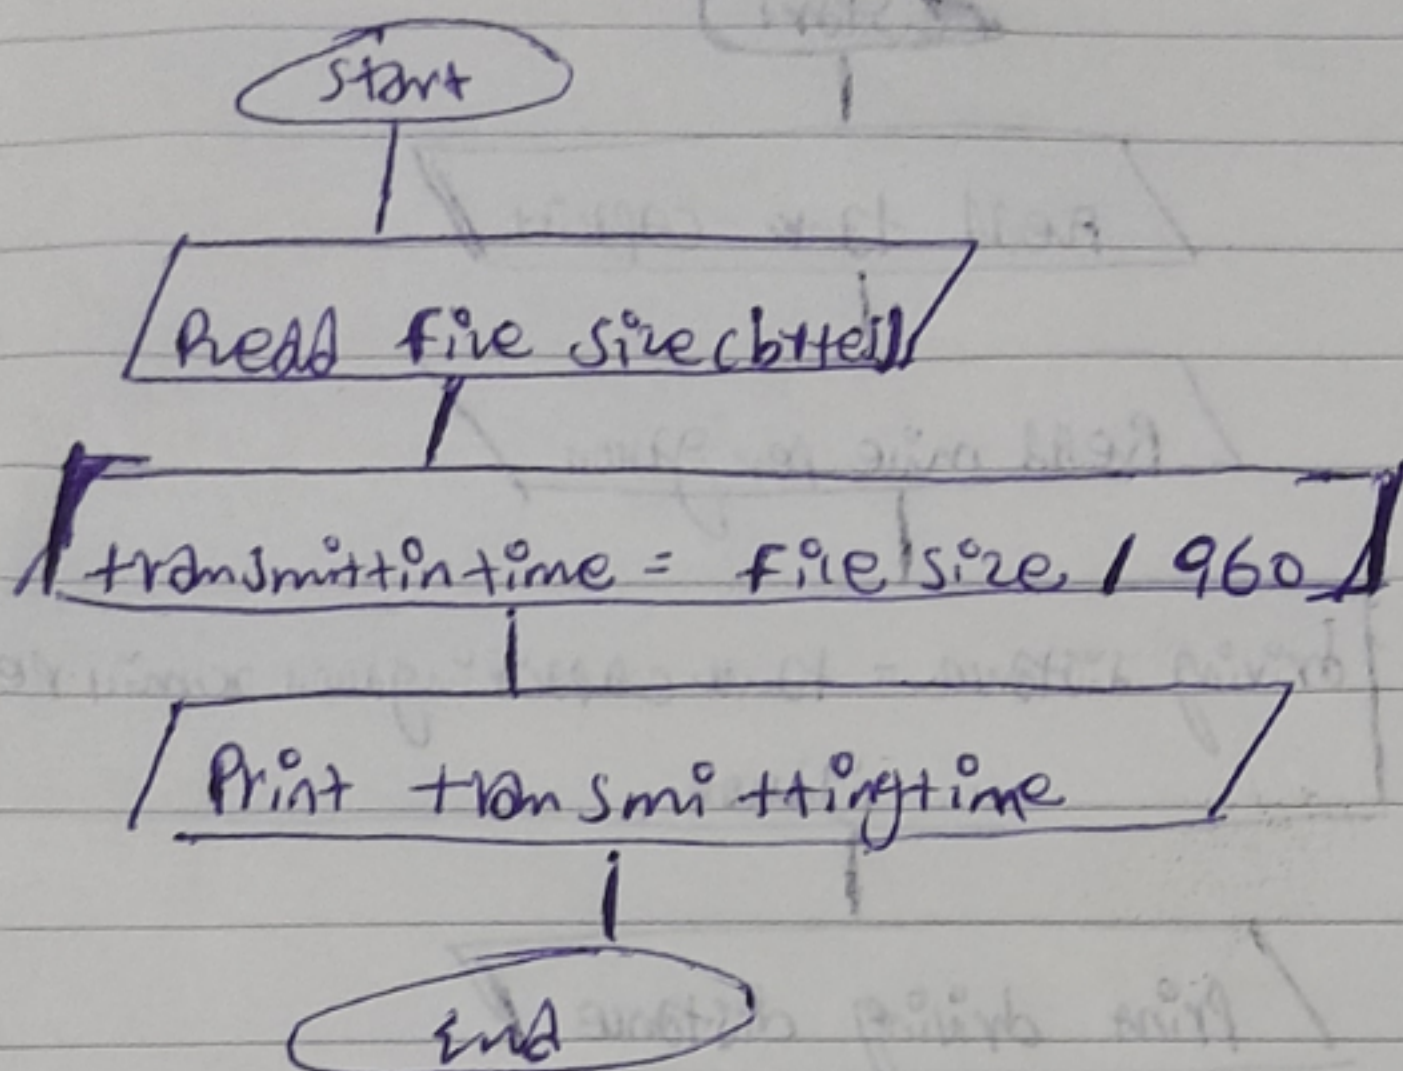 Start
Read file size (bytes)
transmittintime = file size / 960
Print transmittingtime
End